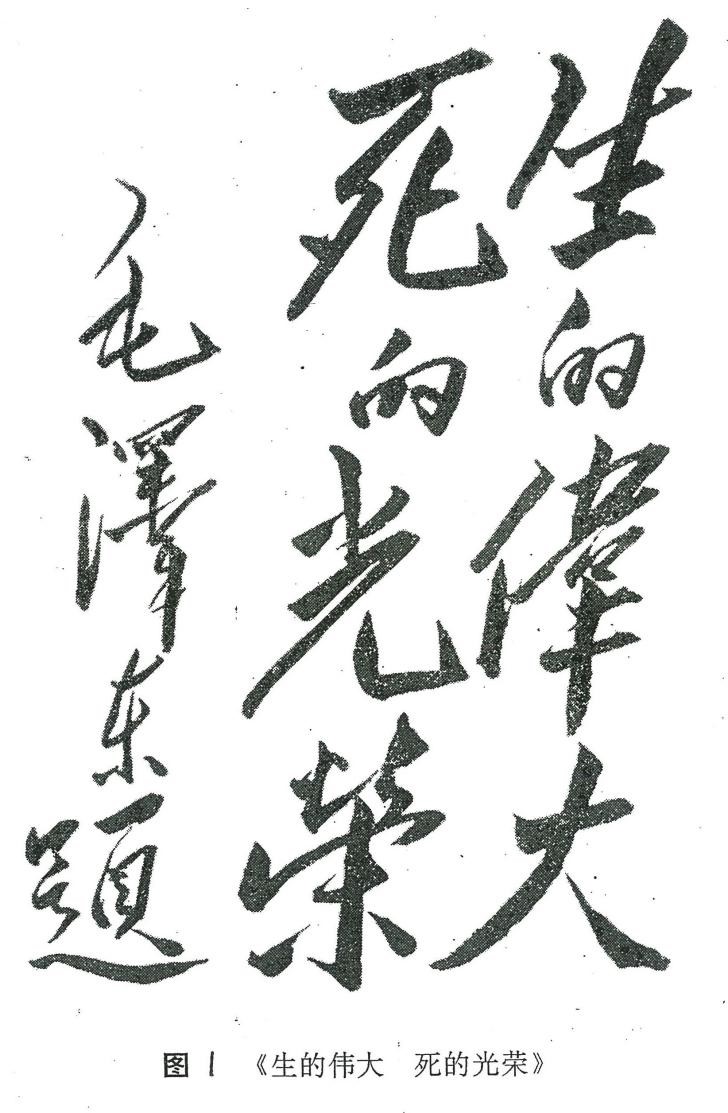 生的偉大
死的光榮
毛澤东題
图1 《生的伟大 死的光荣》